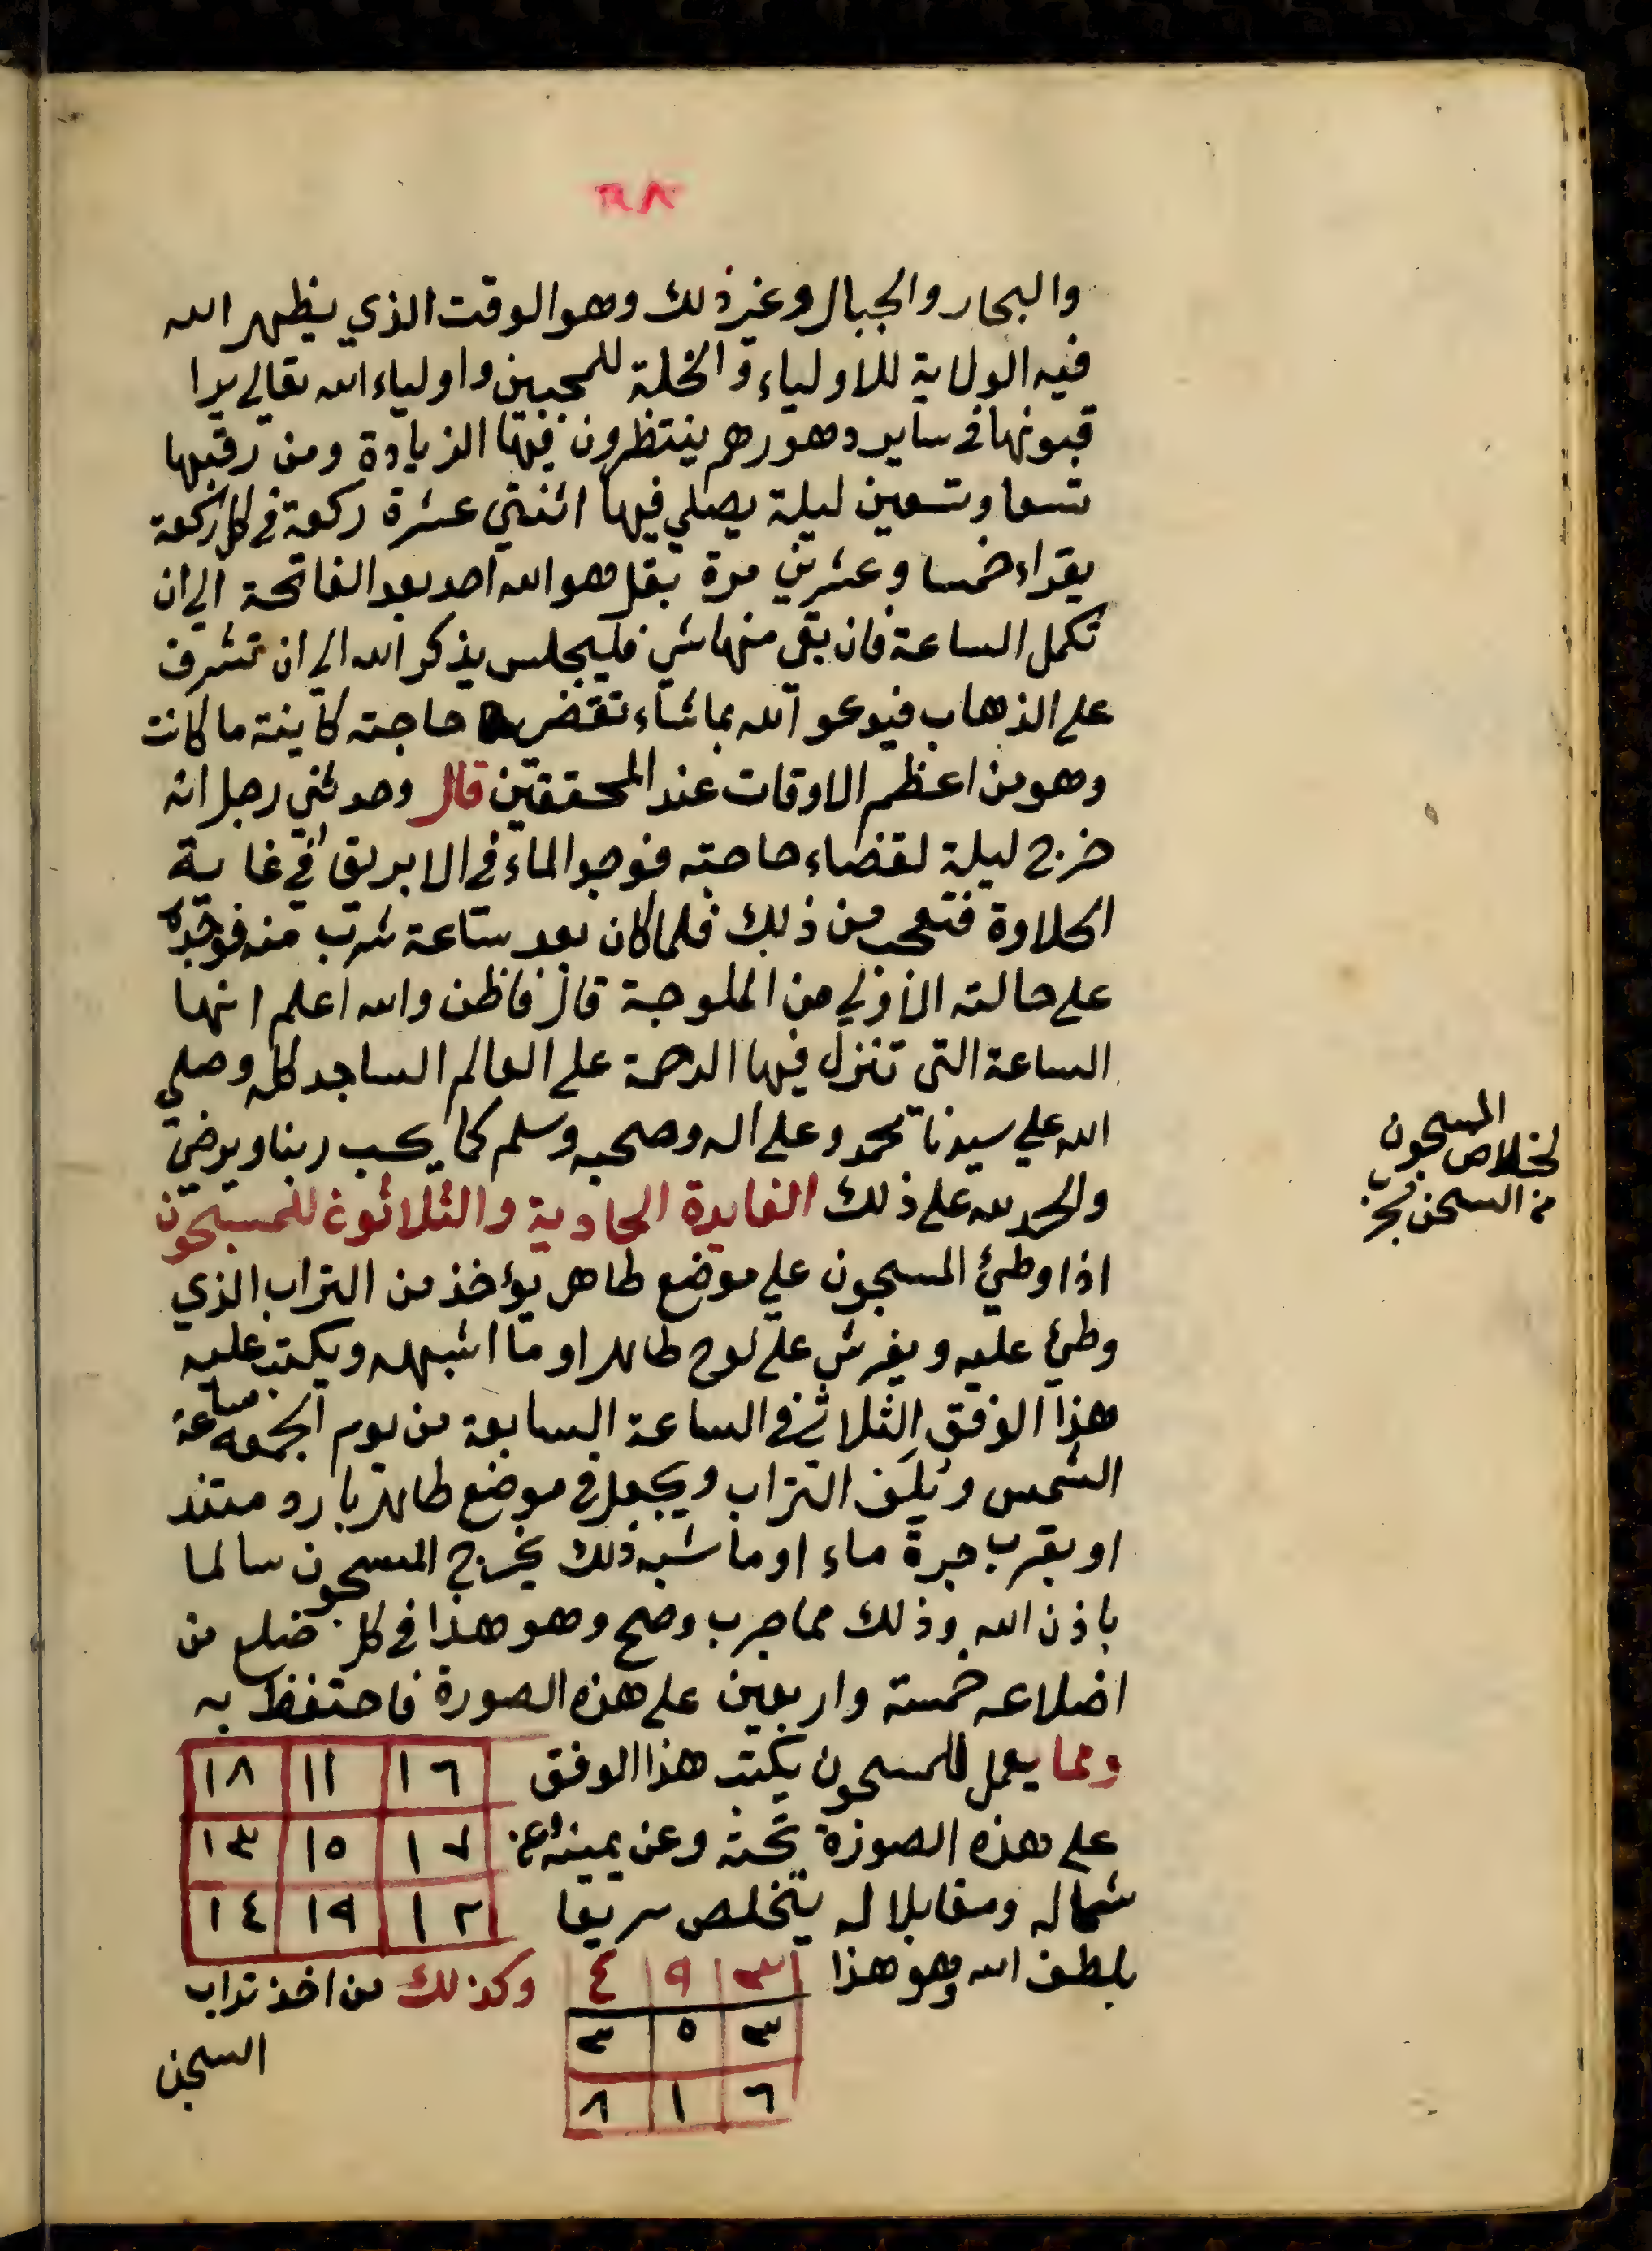 ٢٨
والبحار والجبال وغير ذلك وهو الوقت الذي يظهر الله
فيه الولاية للاولياء والخلة للمحبين واولياء الله تعالى يرا
قبونها في ساير دهورهم ينتظرون فيها الزيادة ومن رقبها
تسعا وتسعين ليلة يصلي فيها اثنتي عشرة ركعة في كل ركعة
يقراء خمسا وعشرين مرة بقل هو الله احد بعد الفاتحة الى ان
تكمل الساعة فان بقي منها شي فليجلس يذكر الله الى ان تشرف
على الذهاب فيدعو الله بما شاء تقضى حاجته كاينة ما كانت
وهو من اعظم الاوقات عند المحققين قال وحدثني رجل انه
خرج ليلة لقضاء حاجته فوجد الماء في الابريق في غاية
الحلاوة فتعجب من ذلك فلما كان بعد ساعة شرب منه فوجده
على حالته الاولى من الملوحة قال فاظن والله اعلم انها
الساعة التي تنزل فيها الرحمة على العالم الساجد كله وصلى
الله على سيدنا محمد وعلى اله وصحبه وسلم كما يحب ربنا ويرضى
والحمد لله على ذلك الفايدة الحادية والثلاثون للمسجون
اذا وطئ المسجون على موضع طاهر يؤخذ من التراب الذي
وطئ عليه ويفرش على لوح طاهر او ما اشبهه ويكتب عليه
هذا الوفق الثلاثي في الساعة السابعة من يوم الجمعه ساعة
الشمس ويلف التراب ويجعل في موضع طاهر بارد مستند
او بقرب جرة ماء او ما شبه ذلك يخرج المسجون سالما
باذن الله وذلك مما جرب وصح وهو هذا في كل ضلع من
اضلاعه خمسة واربعين على هذه الصورة فاحتفظ به
ومما يعمل للمسجون يكتب هذا الوفق
على هذه الصورة تحته وعن يمينه وعن
شماله ومقابلا له يتخلص سريعا
بلطف الله وهو هذا
١٦ ١١ ١٨
١٧ ١٥ ١٣
١٢ ١٩ ١٤
٣ ٩ ٤
٣ ٥ ٣
٦ ١ ٨
وكذلك من اخذ تراب
السجن
المسجون
لخلاص
من السجن مجرب